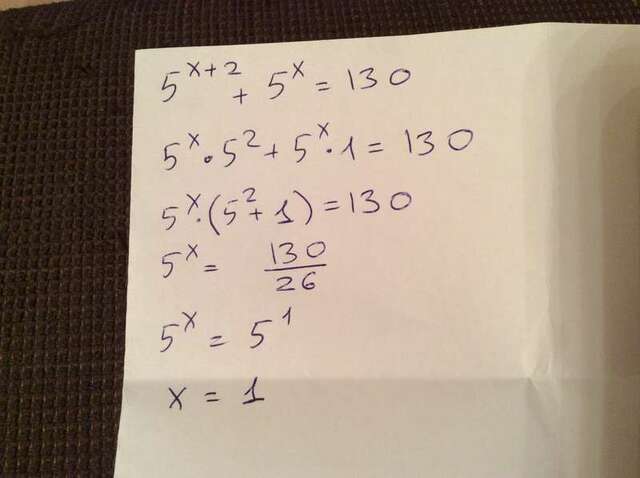 5^{x+2} + 5^x = 130
5^x · 5^2 + 5^x · 1 = 130
5^x · (5^2 + 1) = 130
5^x = \frac{130}{26}
5^x = 5^1
x = 1